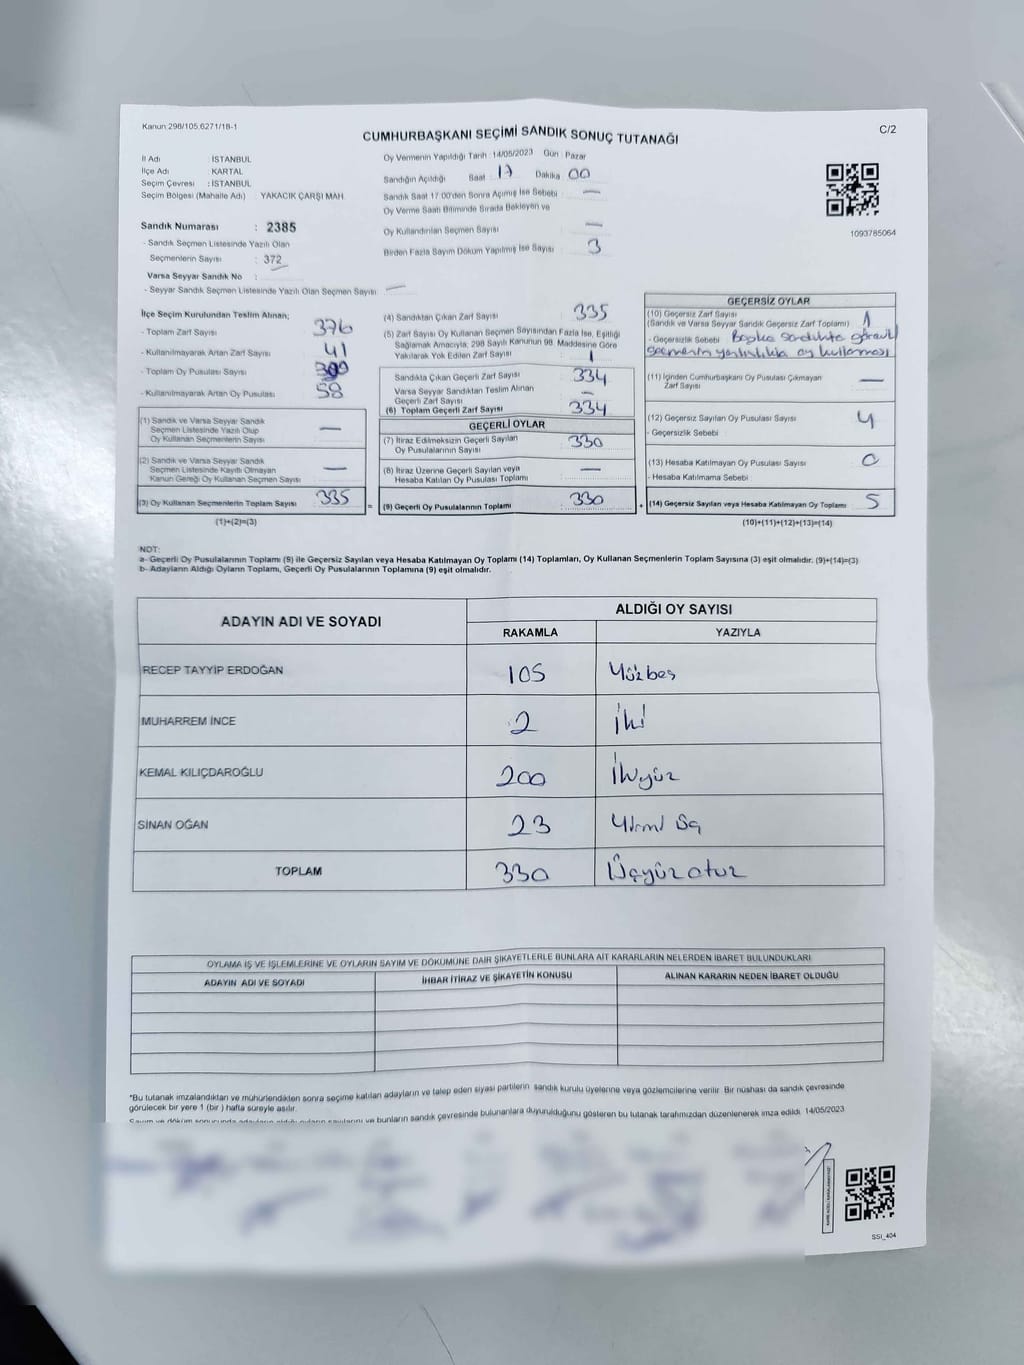 Kanun 298/105,6271/18-1
CUMHURBAŞKANI SEÇİMİ SANDIK SONUÇ TUTANAĞI
C/2
İl Adı İSTANBUL
İlçe Adı KARTAL
Seçim Çevresi : İSTANBUL
Seçim Bölgesi (Mahalle Adı) : YAKACIK ÇARŞI MAH.
Sandık Numarası : 2385
- Sandık Seçmen Listesinde Yazılı Olan
Seçmenlerin Sayısı : 372
Varsa Seyyar Sandık No :
- Seyyar Sandık Seçmen Listesinde Yazılı Olan Seçmen Sayısı —
Oy Vermenin Yapıldığı Tarih 14/05/2023 Gün Pazar
Sandığın Açıldığı Saat 17 Dakika 00
Sandık Saat 17.00'den Sonra Açımış İse Sebebi —
Oy Verme Saati Bitiminde Sırada Bekleyen ve
Oy Kullandırılan Seçmen Sayısı —
Birden Fazla Sayım Döküm Yapılmış İse Sayısı 3
1093785064
İlçe Seçim Kurulundan Teslim Alınan;
- Toplam Zarf Sayısı 376
- Kullanılmayarak Artan Zarf Sayısı 41
- Toplam Oy Pusulası Sayısı
- Kullanılmayarak Artan Oy Pusulası 58
(1) Sandık ve Varsa Seyyar Sandık
Seçmen Listesinde Yazılı Olup
Oy Kullanan Seçmenlerin Sayısı —
(2) Sandık ve Varsa Seyyar Sandık
Seçmen Listesinde Kayıtlı Olmayan
Kanun Gereği Oy Kullanan Seçmen Sayısı —
(3) Oy Kullanan Seçmenlerin Toplam Sayısı 335 =
(1)+(2)=(3)
(4) Sandıktan Çıkan Zarf Sayısı 335
(5) Zarf Sayısı Oy Kullanan Seçmen Sayısından Fazla İse, Eşitliği
Sağlamak Amacıyla, 298 Sayılı Kanunun 98. Maddesine Göre
Yakılarak Yok Edilen Zarf Sayısı 1
Sandıkta Çıkan Geçerli Zarf Sayısı 334
Varsa Seyyar Sandıktan Teslim Alınan
Geçerli Zarf Sayısı —
(6) Toplam Geçerli Zarf Sayısı 334
GEÇERLİ OYLAR
(7) İtiraz Edilmeksizin Geçerli Sayılan
Oy Pusulalarının Sayısı 330
(8) İtiraz Üzerine Geçerli Sayılan veya
Hesaba Katılan Oy Pusulası Toplamı —
(9) Geçerli Oy Pusulalarının Toplamı 330 +
GEÇERSİZ OYLAR
(10) Geçersiz Zarf Sayısı
(Sandık ve Varsa Seyyar Sandık Geçersiz Zarf Toplamı) 1
- Geçersizlik Sebebi Başka sandıkta görevli
seçmenin yanlışlıkla oy kullanması
(11) İçinden Cumhurbaşkanı Oy Pusulası Çıkmayan
Zarf Sayısı —
(12) Geçersiz Sayılan Oy Pusulası Sayısı 4
- Geçersizlik Sebebi
(13) Hesaba Katılmayan Oy Pusulası Sayısı 0
- Hesaba Katılmama Sebebi
(14) Geçersiz Sayılan veya Hesaba Katılmayan Oy Toplamı 5
(10)+(11)+(12)+(13)=(14)
NOT:
a- Geçerli Oy Pusulalarının Toplamı (9) ile Geçersiz Sayılan veya Hesaba Katılmayan Oy Toplamı (14) Toplamları, Oy Kullanan Seçmenlerin Toplam Sayısına (3) eşit olmalıdır. (9)+(14)=(3)
b- Adayların Aldığı Oyların Toplamı, Geçerli Oy Pusulalarının Toplamına (9) eşit olmalıdır.
ADAYIN ADI VE SOYADI
ALDIĞI OY SAYISI
RAKAMLA YAZIYLA
RECEP TAYYİP ERDOĞAN 105 Yüzbeş
MUHARREM İNCE 2 İki
KEMAL KILIÇDAROĞLU 200 İkiyüz
SİNAN OĞAN 23 Yirmi üç
TOPLAM 330 Üçyüzotuz
OYLAMA İŞ VE İŞLEMLERİNE VE OYLARIN SAYIM VE DÖKÜMÜNE DAİR ŞİKAYETLERLE BUNLARA AİT KARARLARIN NELERDEN İBARET BULUNDUKLARI
ADAYIN ADI VE SOYADI İHBAR İTİRAZ VE ŞİKAYETİN KONUSU ALINAN KARARIN NEDEN İBARET OLDUĞU
*Bu tutanak imzalandıktan ve mühürlendikten sonra seçime katılan adayların ve talep eden siyasi partilerin sandık kurulu üyelerine veya gözlemcilerine verilir. Bir nüshası da sandık çevresinde
görülecek bir yere 1 (bir) hafta süreyle asılır.
Sayım ve döküm sonucunda adayların aldığı oyların sayılarını ve bunların sandık çevresinde bulunanlara duyurulduğunu gösteren bu tutanak tarafımızdan düzenlenerek imza edildi. 14/05/2023
SSI_404